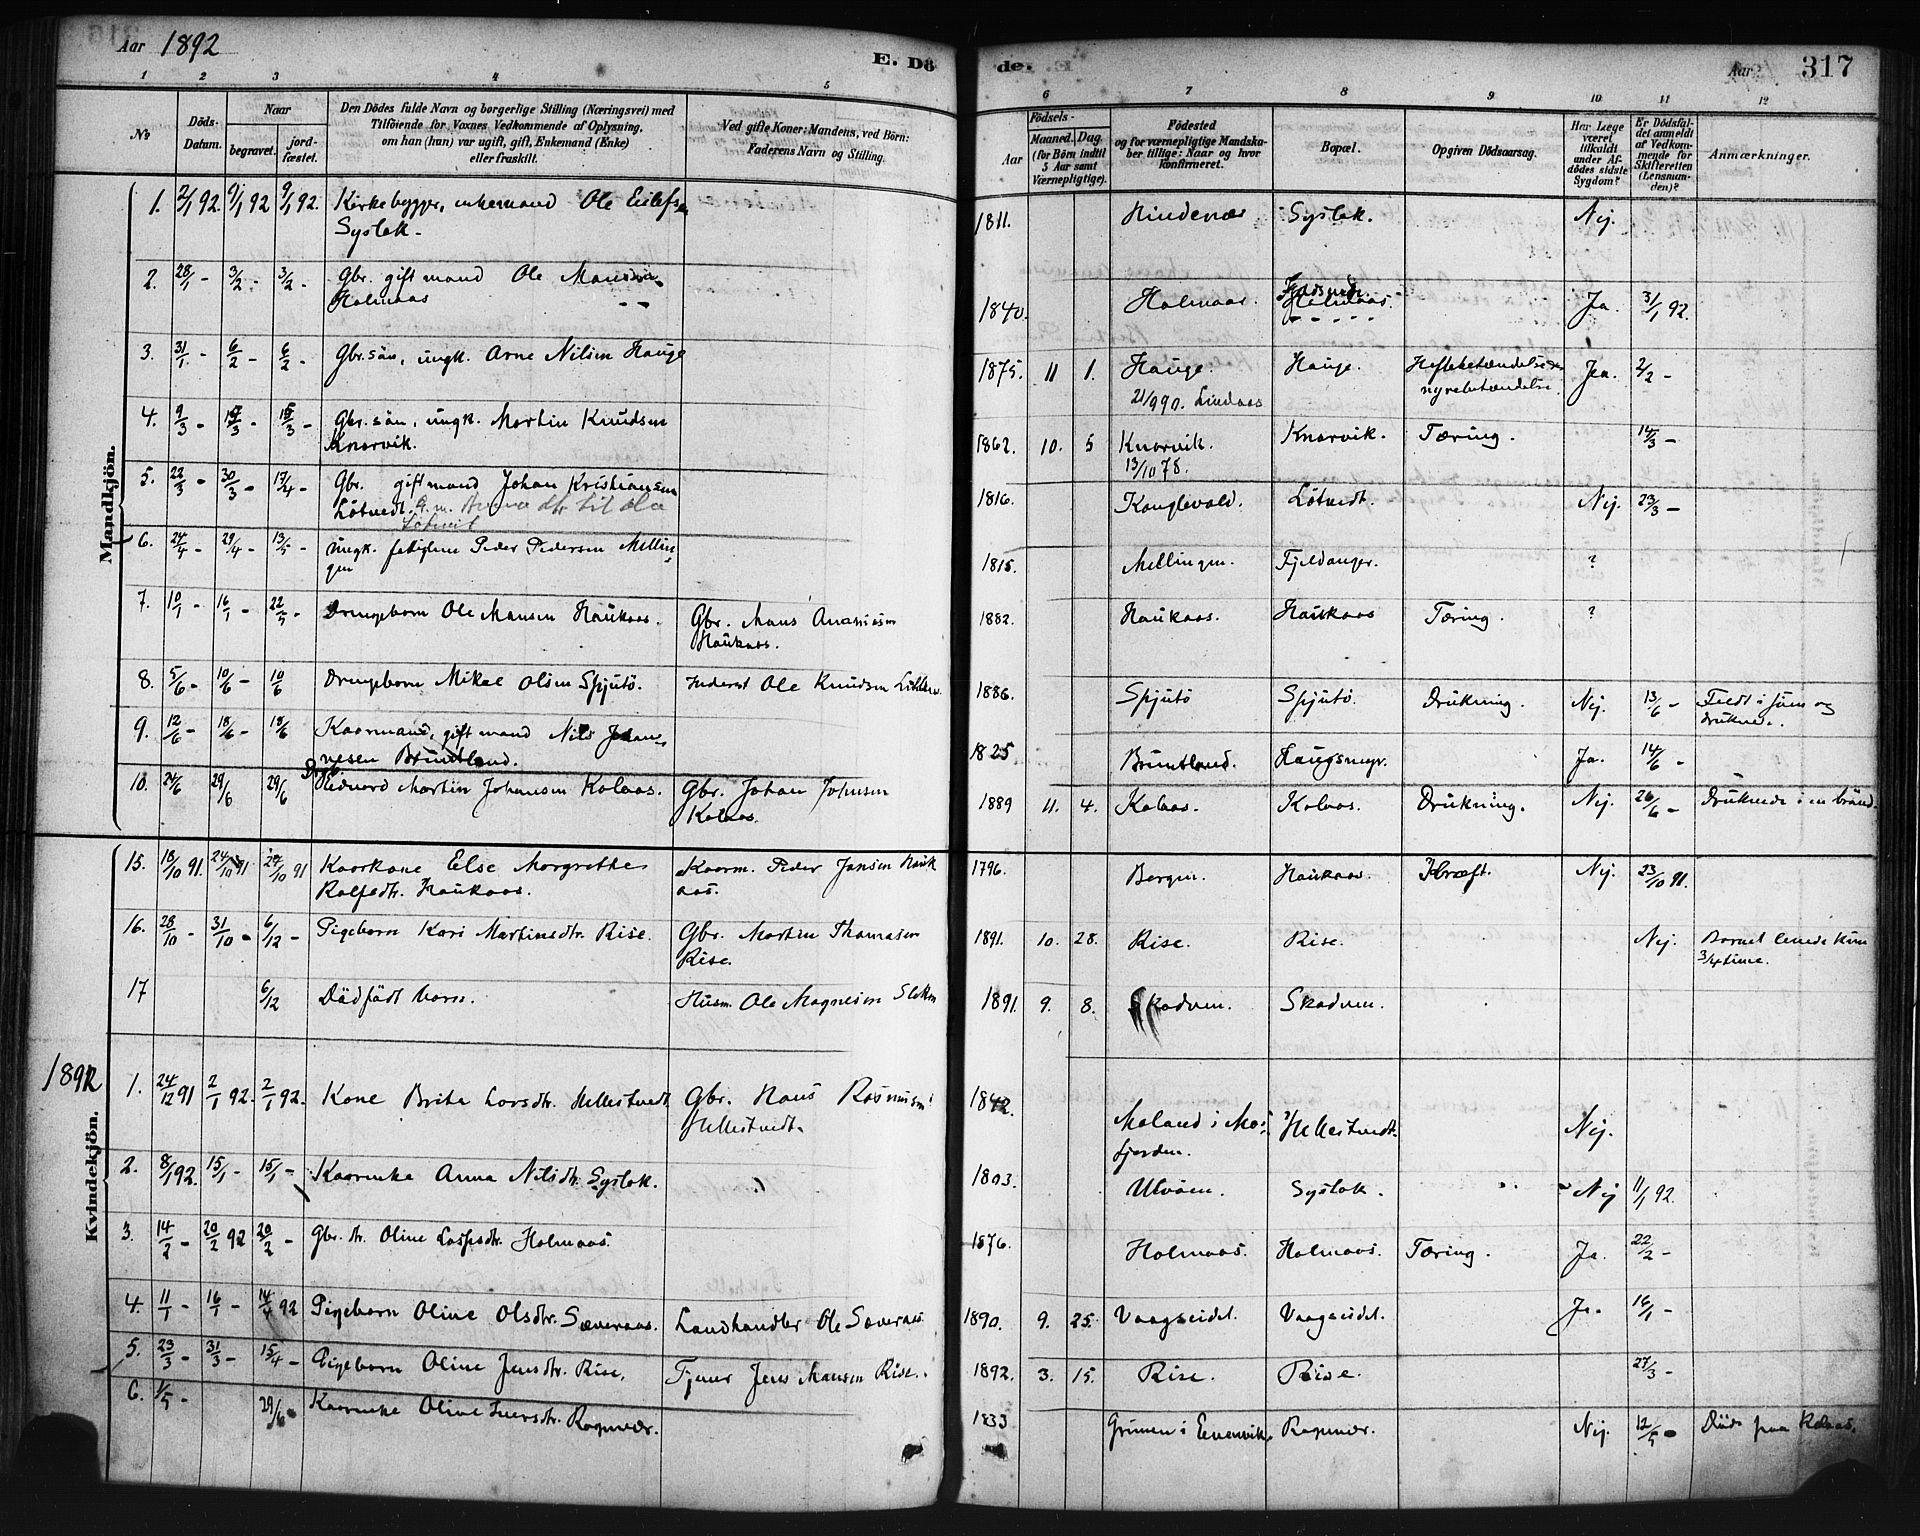 Aar 1892
E. Dö
de.
Aar
317
1 2 3 4 5 6 7 8 9 10 11 12
No
Döds-
Datum.
Naar
begravet.
jord-
fæstet.
Den Dödes fulde Navn og borgerlige Stilling (Næringsvei) med
Tilföiende for Voxnes Vedkommende af Oplysning,
om han (hun) var ugift, gift, Enkemand (Enke)
eller fraskilt.
Ved gifte Koner: Mandens, ved Börn:
Faderens Navn og Stilling.
Födsels-
Aar
Maaned. Dag
(for Börn indtil
5 Aar samt
Værnepligtige).
Födested
og for værnepligtige Mandska-
ber tillige: Naar og hvor
konfirmeret.
Bopæl.
Opgiven Dödsaarsag.
Har Læge
været
tilkaldt
under Af-
dödes sidste
Sygdom?
Er Dödsfal-
det anmeldt
af Vedkom-
mende for
Skifteretten
(Lensman-
den)?
Anmærkninger.
Mandkjön.
1. 2/1 92. 9/1 92 9/1 92. Kirkebygger, enkemand Ole Eilefsen 1811. Hindenær Syslak. Nej.
Syslak.
2. 28/1 - 3/2 - 3/2 - Gbr. gift mand Ole Mansen 1840. Holmaas. Holmaas. Ja. 31/1 92.
Holmaas
3. 31/1 - 6/2 - 6/2 - Gbr. sön, ungk. Arne Nilsen Hauge 1875. 11 1. Hauge. Hauge. Jea. 2/2 -
21/9 90. Lindaas nyrebetændelse.
4. 9/3 - Gbr. sön, ungk. Martin Knudsen 1862. 10. 5 Knarvik. Knarvik. Tæring. 14/3 -
Knarvik. 13/10 78.
5. 22/3 - 30/3 - 17/4 - Gbr. gift mand Johan Kristiansen 1816. Kanglevold. Lötvedt. Nej. 23/3 -
Lötvedt. G.m. Anna dtr. til Ola
Lötveit
6. 24/4 - 29/4 - 13/5 - Ungk. fattiglem Peder Pedersen Mellin- 1815. Mellingen. Fjeldanger. ?
gen
7. 10/1 - 16/1 - 22/5 - Drengebarn Ole Mansen Haukaas. Gbr. Mans 1882. Haukaas. Haukaas Tæring. ?
Haukaas.
8. 5/6 - 10/6 - 10/6 Drengebarn Mikal Olsen Spjutö. Inderst Ole Knudsen 1886. Spjutö Spjutö. Drukning. Nej. 13/6 - Faldt i sjöen og
druknede.
9. 12/6 - 18/6 - 18/6 Kaarmand, gift mand Nils Johan- 1825 Bruntland. Haugsmyr. Ja. 14/6 -
nesen Bruntland.
10. 24/6 29/6 29/6 Martin Johansen Kolaas. Gbr. Johan Johnsen 1889 11. 4. Kolaas. Kolaas. Drukning. Nej. 26/6 - Druknede i en brönd.
Kolaas.
Kvindekjön.
15. 18/10 91. 24/10 91 24/10 91 Kaarkone Else Margrethe Kaarm. Peder Jansen Hauk 1796. Bergen. Haukaas. Kræft. Nej. 23/10 91.
Rolfsdtr. Haukaas. aas.
16. 28/10 - 31/10 - 6/12 - Pigebarn Kari Martinsdtr. Rise. Gbr. Martin Thomasen 1891. 10. 28. Rise. Rise. Nej. Barnet levede kun
Rise. 3/4 time.
17 6/12 Dödfödt barn. Husm. Ole Magnesen 1891. 9. 8. Skodven. Skodven.
1892
1. 24/12 91 2/1 92. 2/1 92. Kone Brita Larsdtr. Hellestvedt Gbr. Hans Rasmusen 1842. Moland i Mos- Hellestvedt Nej.
Hellestvedt. fjorden.
2. 8/1 92. 15/1 - 15/1 - Kaarenke Anna Nilsdtr. Syslak. 1803. Ulvöen. Syslak. Nej 11/1 92.
3. 14/2 - 20/2 92 20/2 - Gbr. dtr. Oline Holmaas. 1876. Holmaas. Holmaas. Tæring. Ja. 22/2 -
4. 11/1 - 16/1 - 14/4 92 Pigebarn Oline Olsdtr. Sæveraas. Landhandler Ole Sæveraas 1890. 9. 25. Vaagseidet. Vaagseidet. Ja. 16/1 -
5. 23/3 - 31/3 - 15/4 - Pigebarn Oline Jensdtr. Rise. Tjener Jens Mansen Rise. 1892. 3. 15. Rise. Rise. 27/3 -
6. 1/5 - 29/6 Kaarenke Oline Iversdtr. Ragnvær. 1833 Grimen i Evenvik. Ragnvær. Nej. 12/5 - Döde paa Kolaas.